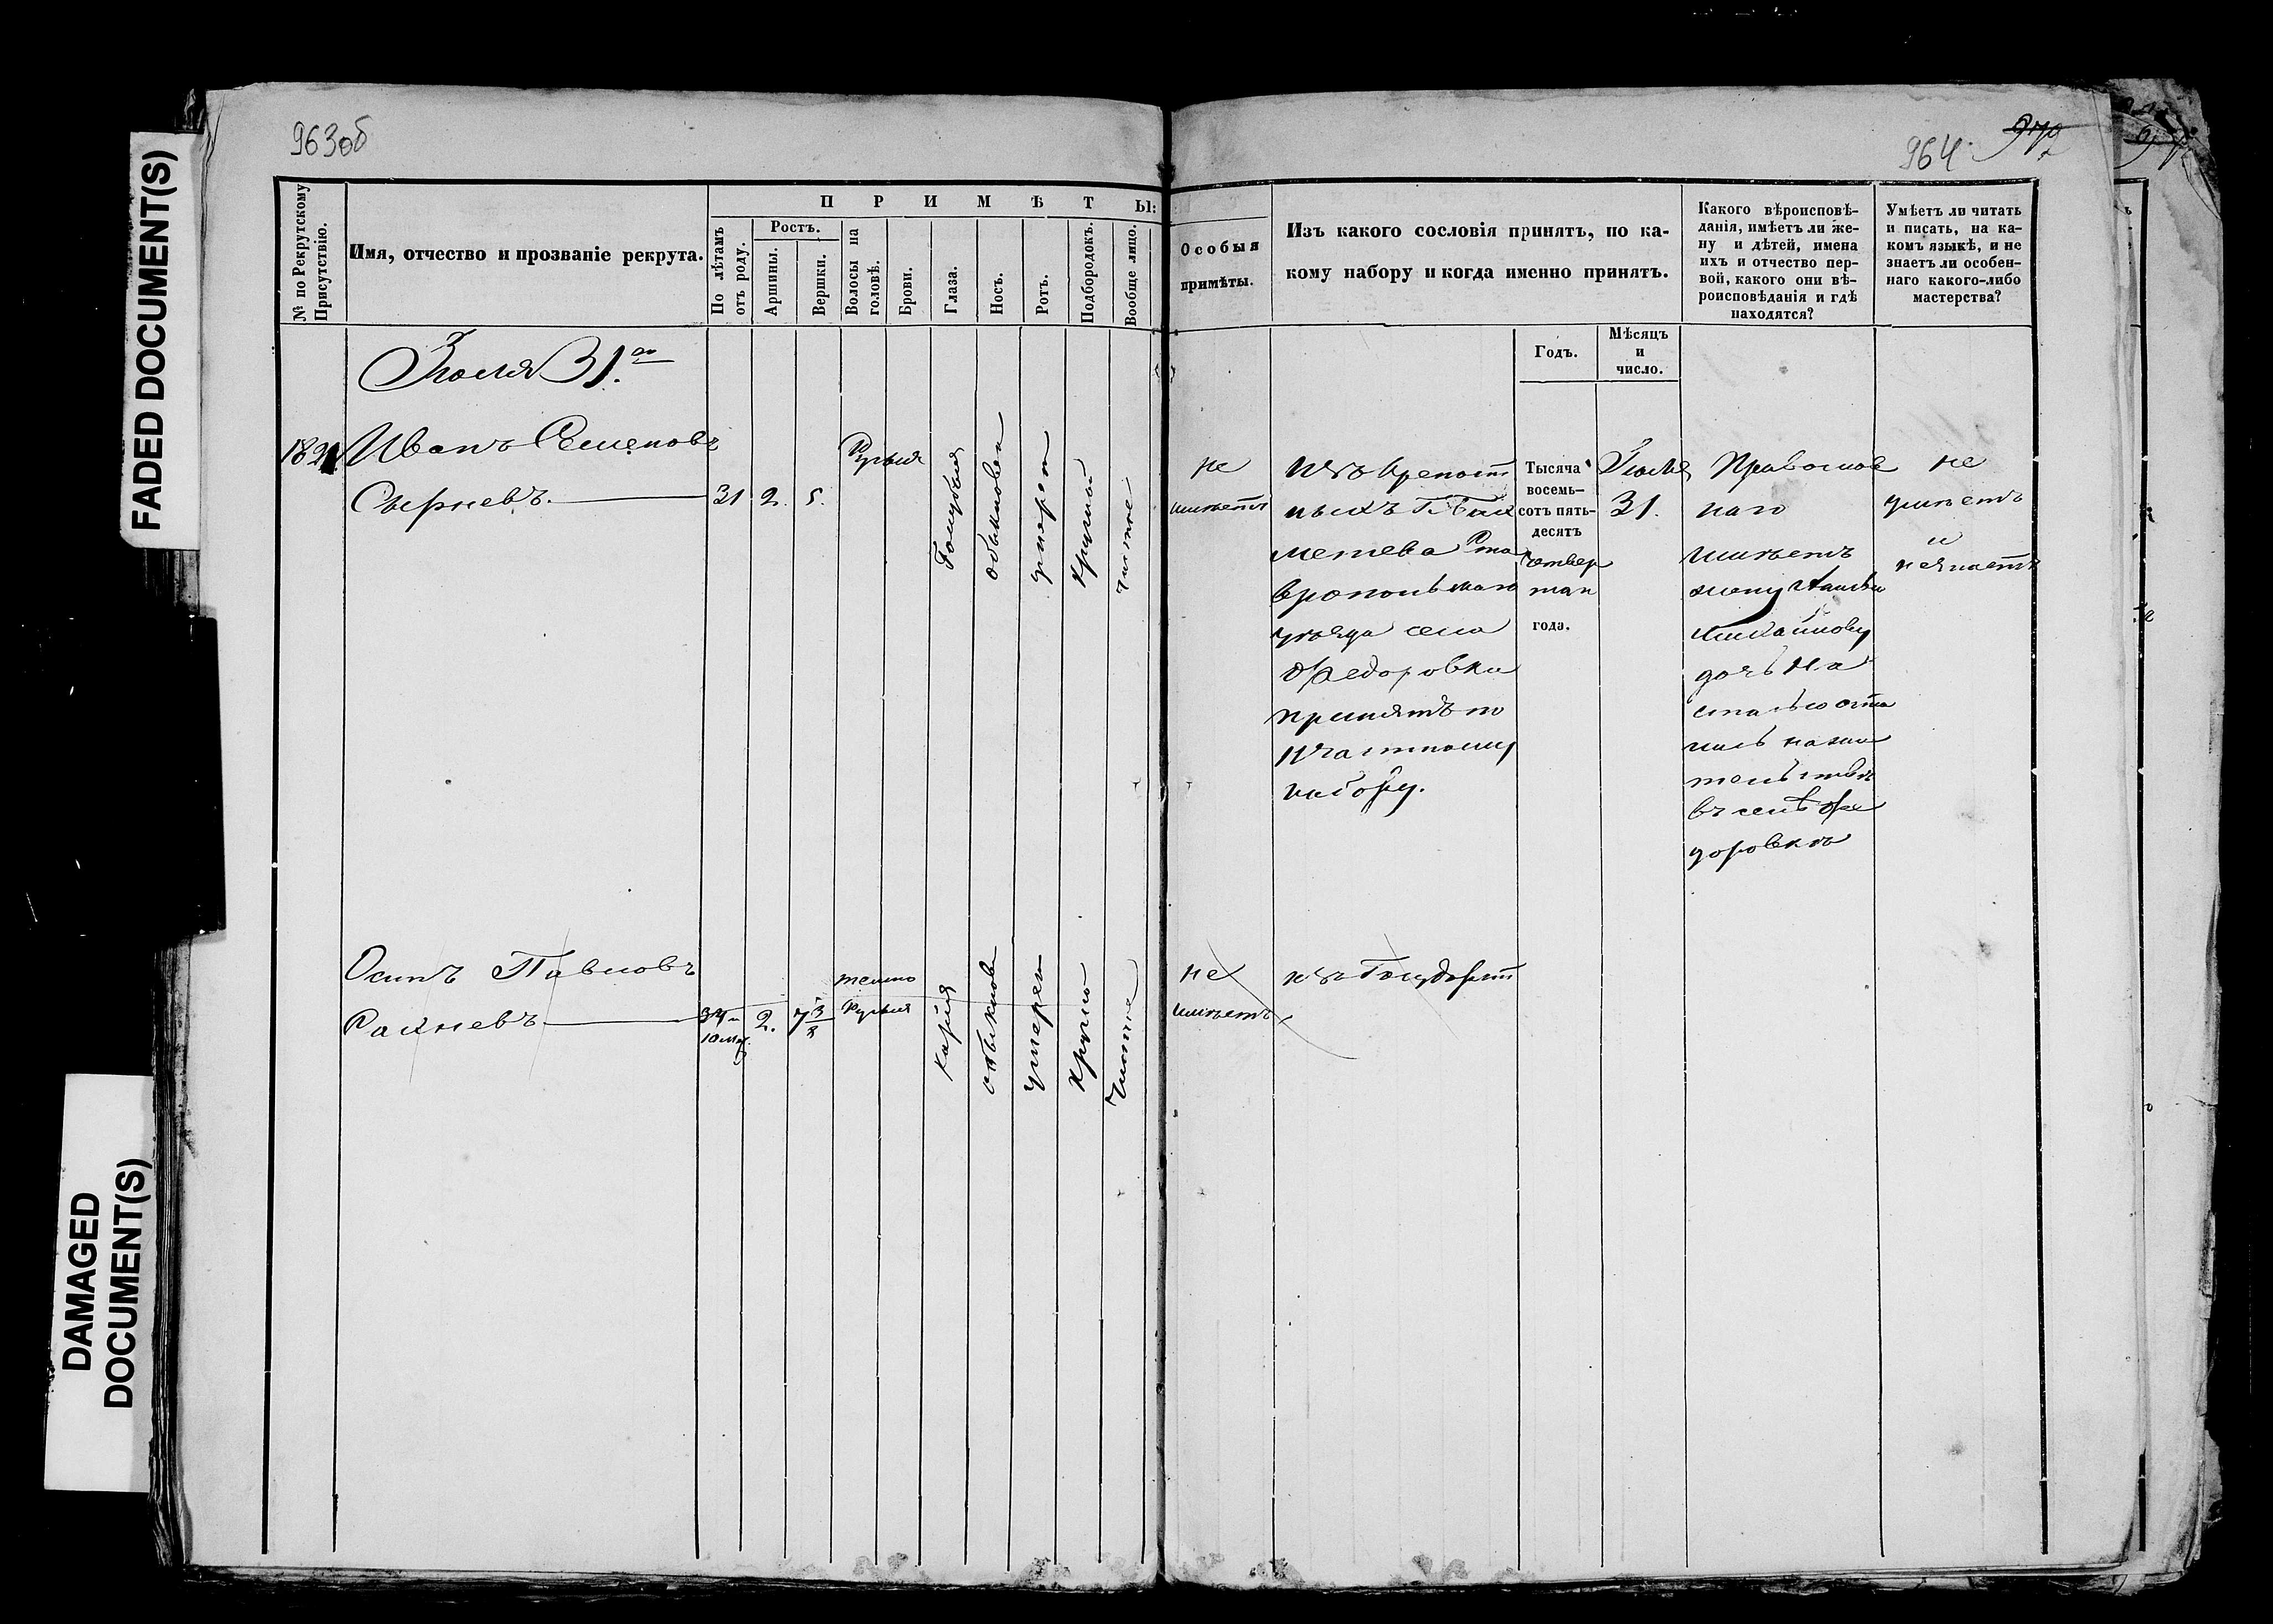 FADED DOCUMENT(S)
DAMAGED
DOCUMENT(S)
963об
964
№ по Рекрутскому
Присутствію.
Имя, отчество и прозваніе рекрута.
П Р И М Ѣ Т Ы:
По лѣтамъ
отъ роду.
Ростъ.
Аршины.
Вершки.
Волосы на
головѣ.
Брови.
Глаза.
Носъ.
Ротъ.
Подбородокъ.
Вообще лицо.
Особыя
примѣты.
Изъ какого сословія принятъ, по ка-
кому набору и когда именно принятъ.
Годъ.
Мѣсяцъ
и
число.
Какого вѣроисповѣ-
данія, имѣетъ ли же-
ну и дѣтей, имена
ихъ и отчество пер-
вой, какого они вѣ-
роисповѣданія и гдѣ
находятся?
Умѣетъ ли читать
и писать, на ка-
комъ языкѣ, и не
знаетъ ли особен-
наго какого-либо
мастерства?
Іюля 31.го
Иванъ Семеновъ
Сырневъ.
31
2.
5.
Русыя
Голубыя
обыкновен
умерен
круглый
чистое
не
имѣетъ
изъ крепост
ныхъ Г.
метева Ста
вропольскаго
уѣзда села
Федоровки
принятъ по
частному
набору.
Тысяча
восемь-
сотъ пять-
десятъ
четвер
таго
года.
Іюля
31.
Православ
наго
имѣетъ
жену
Михайлову
дочь На
сталью оста
лись на жи
тельствѣ
въ селѣ Фе
доровкѣ
не
умѣетъ
и
незнаетъ
Осипъ Павловъ
34 и
10 мѣ.
2.
7 3/8
темно
русыя
карія
обыкнов
умерен
кругло
Чистое
не
имѣетъ
изъ Государст